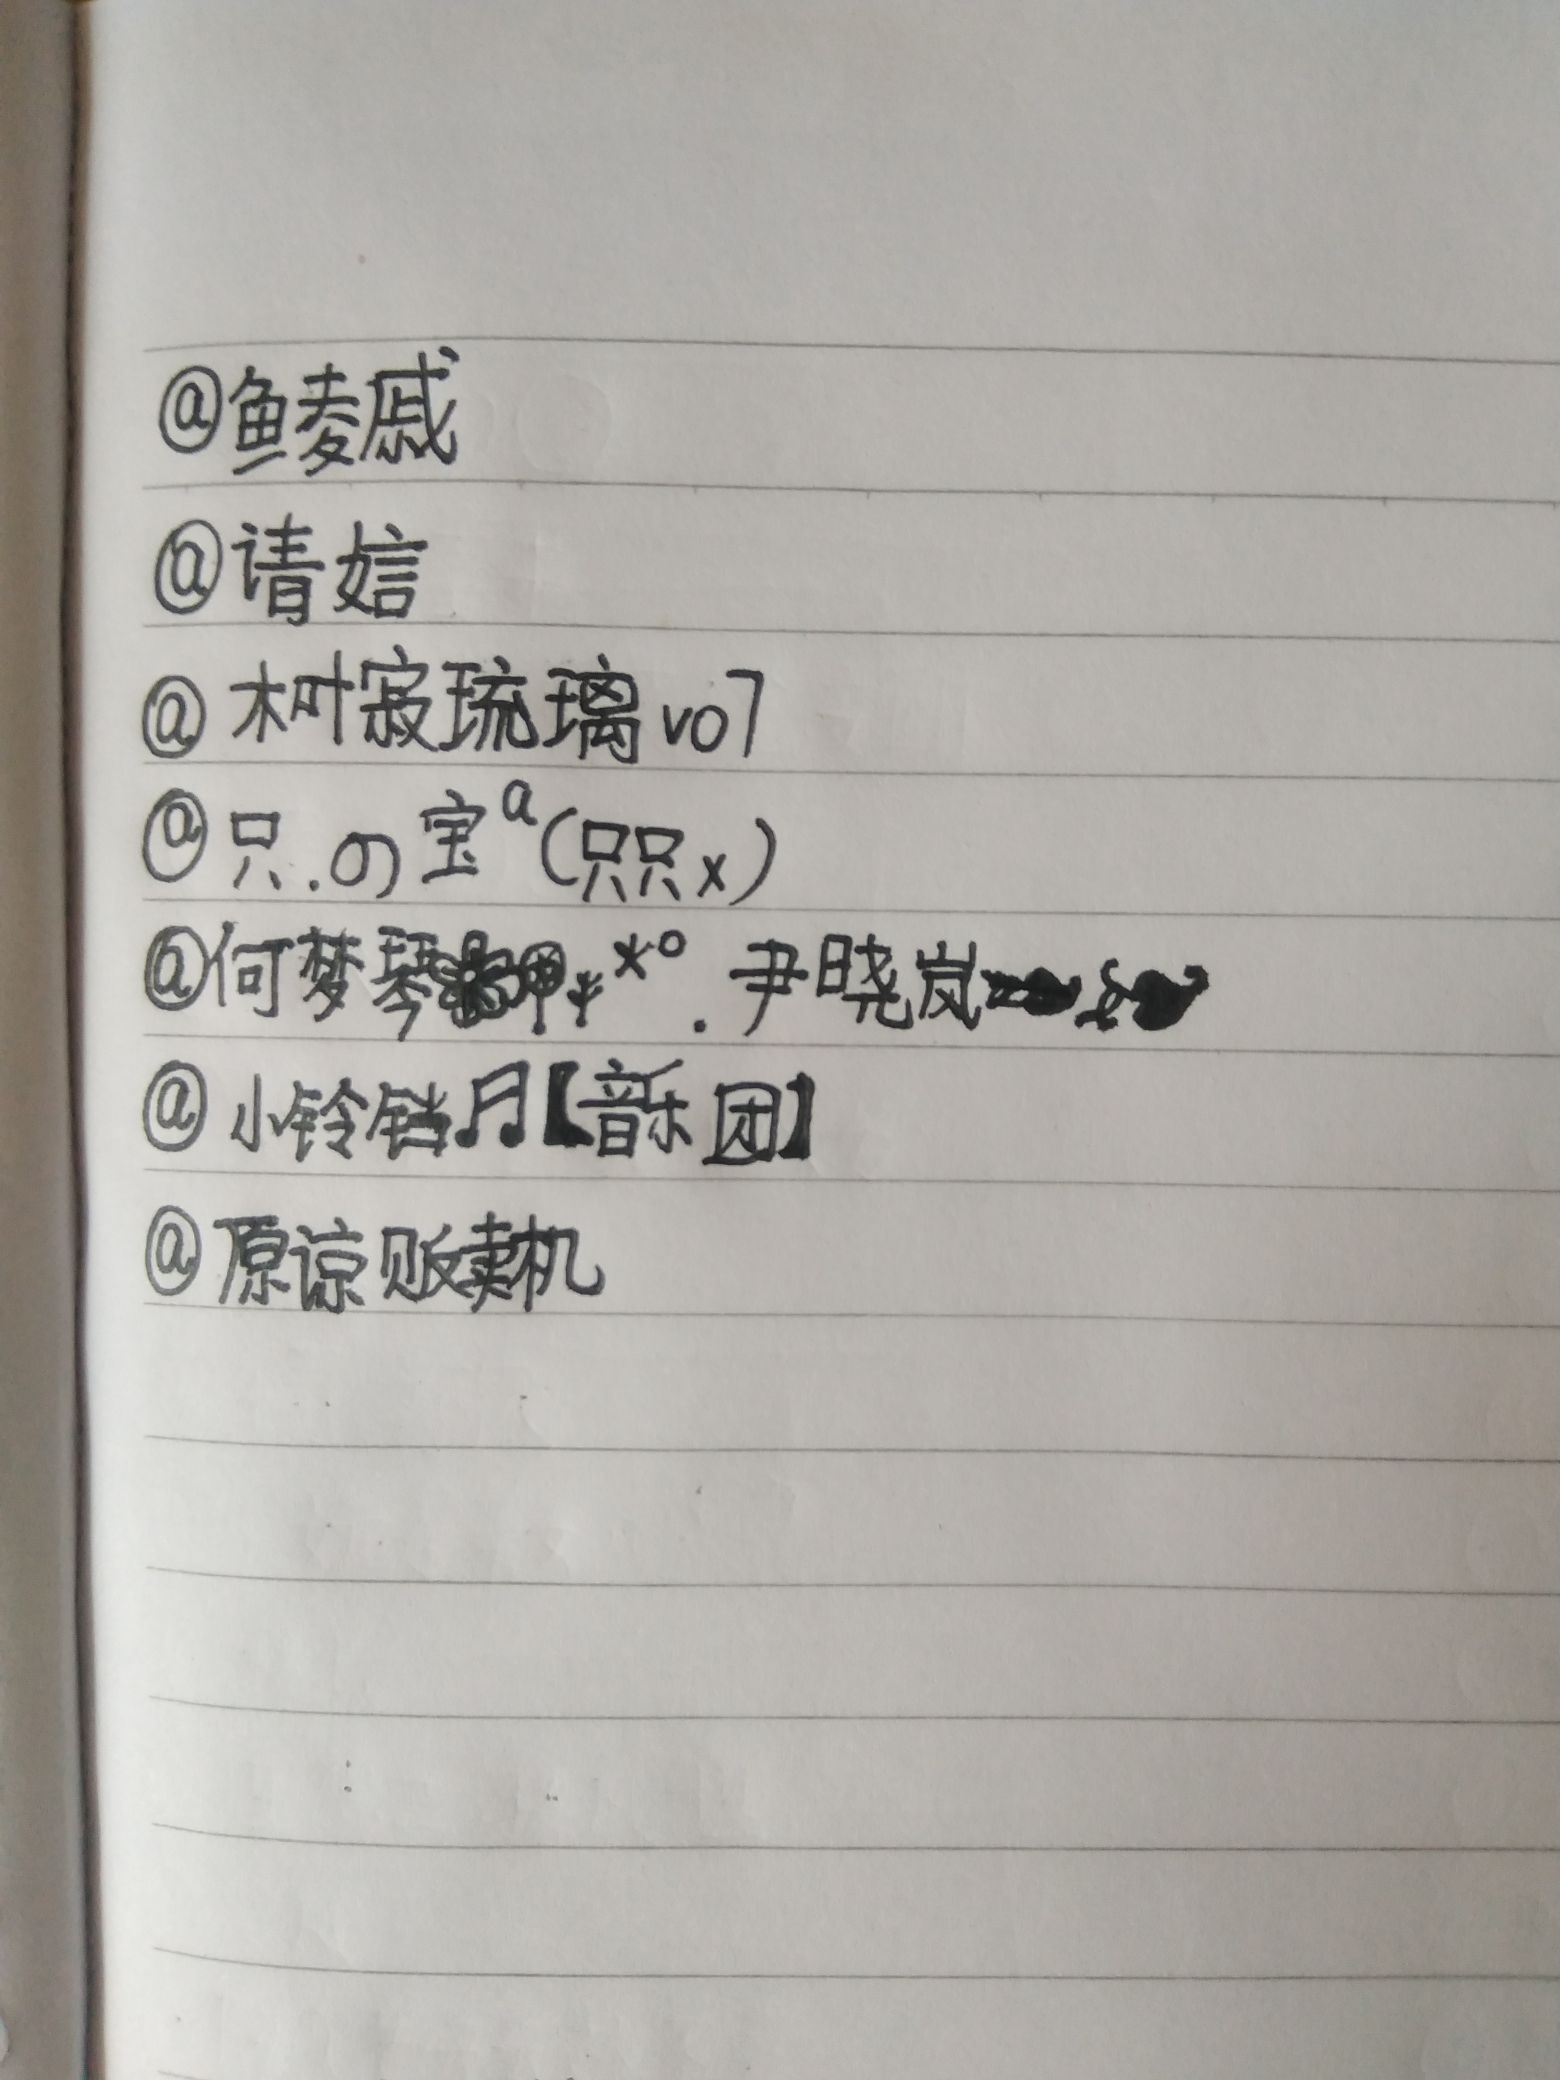 @鱼麦戚
@请姞
@木叶寂琉璃vo7
@只.の宝a(只只x)
@何梦琴*°.尹晓岚
@小铃铛♬【音乐团】
@原谅贩卖机